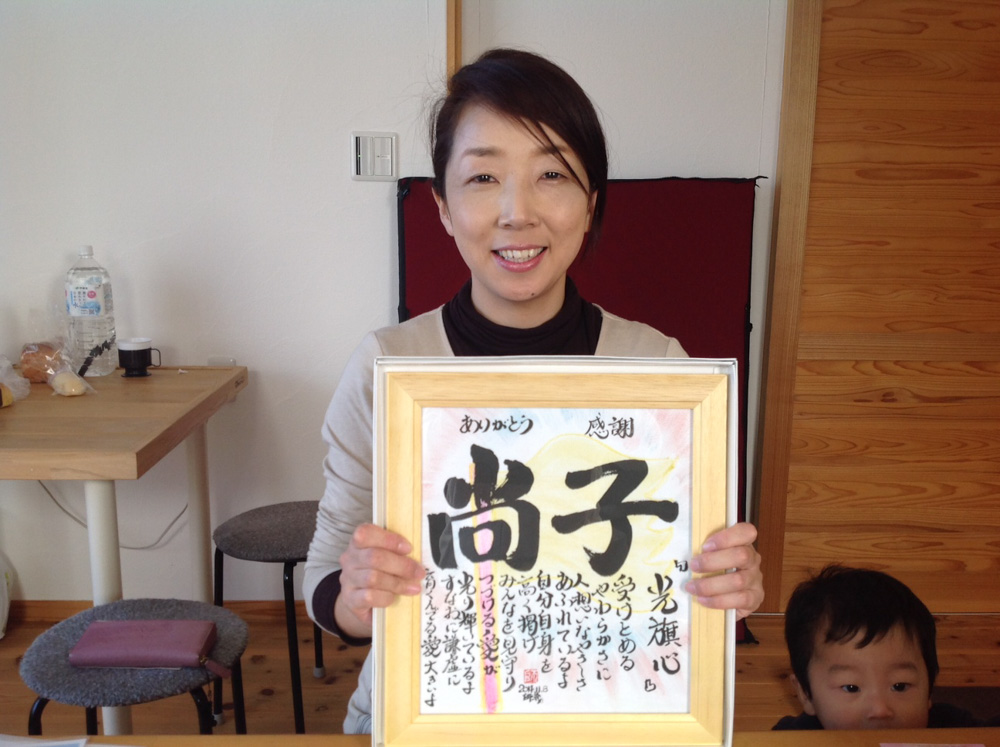 ありがとう 感謝
尚子
「光旗心」
受けとめる
やわらかさに
人想いなやさしさ
あふれているよ
自分自身を
高く掲げ
みんなを見守り
つづける愛が
光り輝いているよ
すなおに謙虚に
愛大きいよ